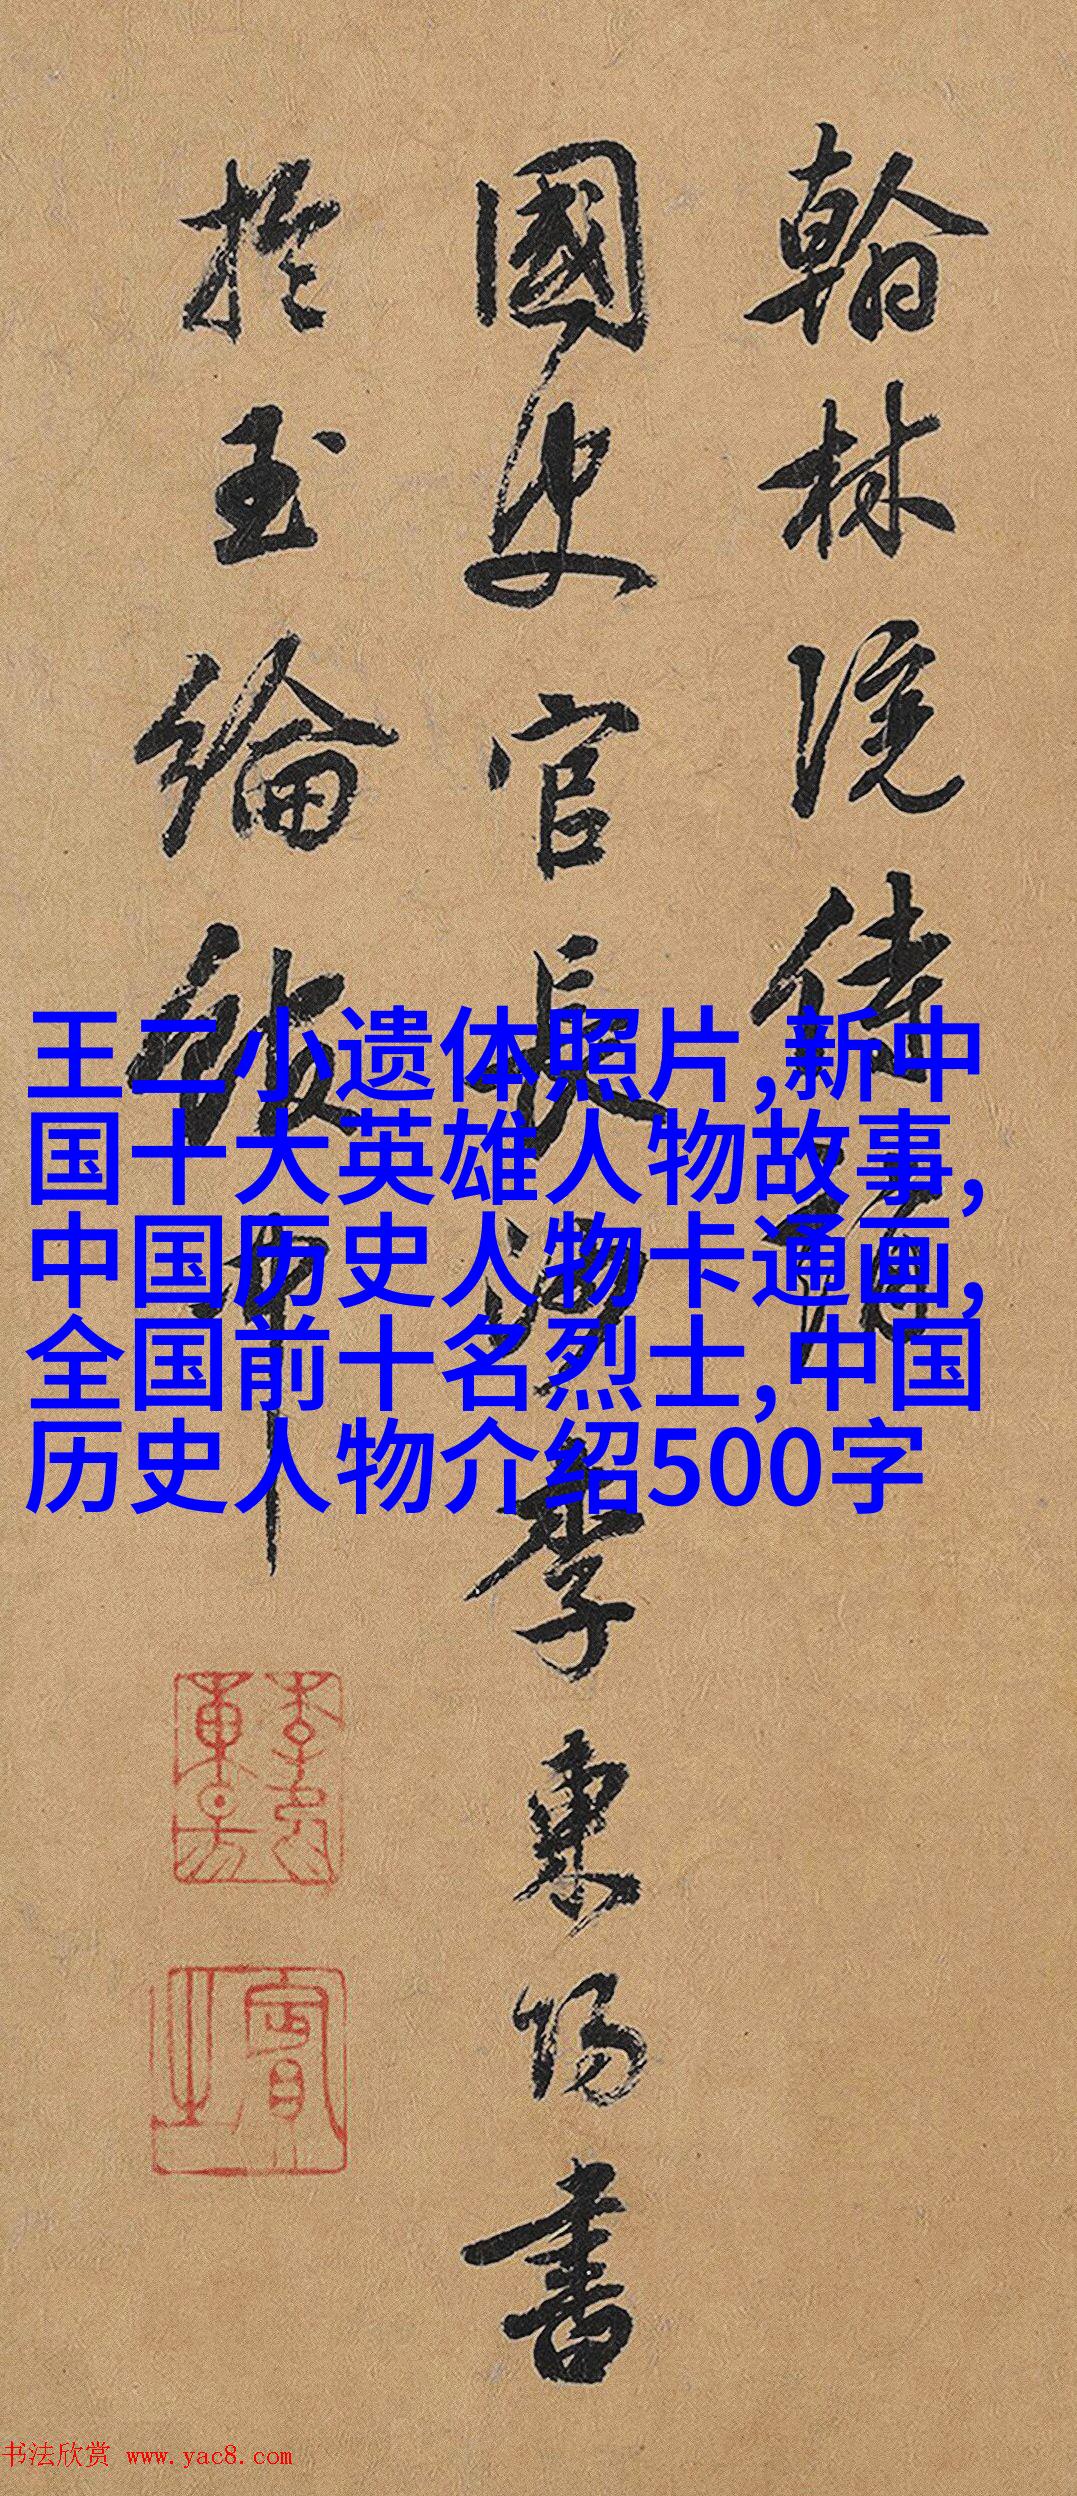 翰林院侍
國史官長沙李東陽書
於玉綸
王二小遗体照片,新中
国十大英雄人物故事,
中国历史人物卡通画,
全国前十名烈士,中国
历史人物介绍500字
賓之
书法欣赏 www.yac8.com